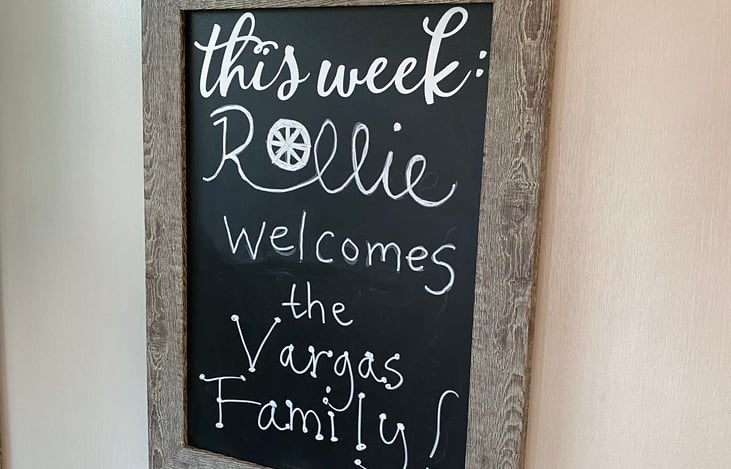 this week:
Rollie
welcomes
the
Vargas
Family!